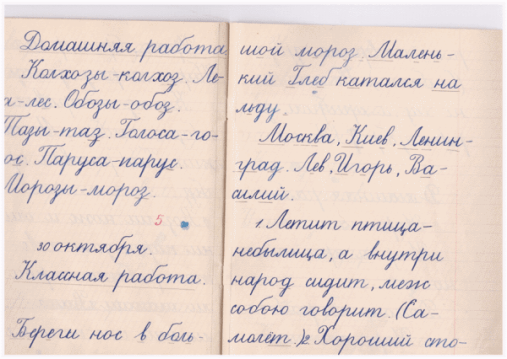 Домашняя работа
Колхозы-колхоз. Ле-
а-лес. Обозы-обоз.
Тазы-таз. Голоса-го-
ос. Паруса-парус.
Морозы-мороз.
5
30 октября.
Классная работа.
Береги нос в боль-
шой мороз. Малень-
кий Глеб катался на
льду.
Москва, Киев, Ленин-
град. Лев, Игорь, Ва-
силий.
1 Летит птица-
небылица, а внутри
народ сидит, меж
собою говорит. (Са-
молёт.) 2 Хороший сто-